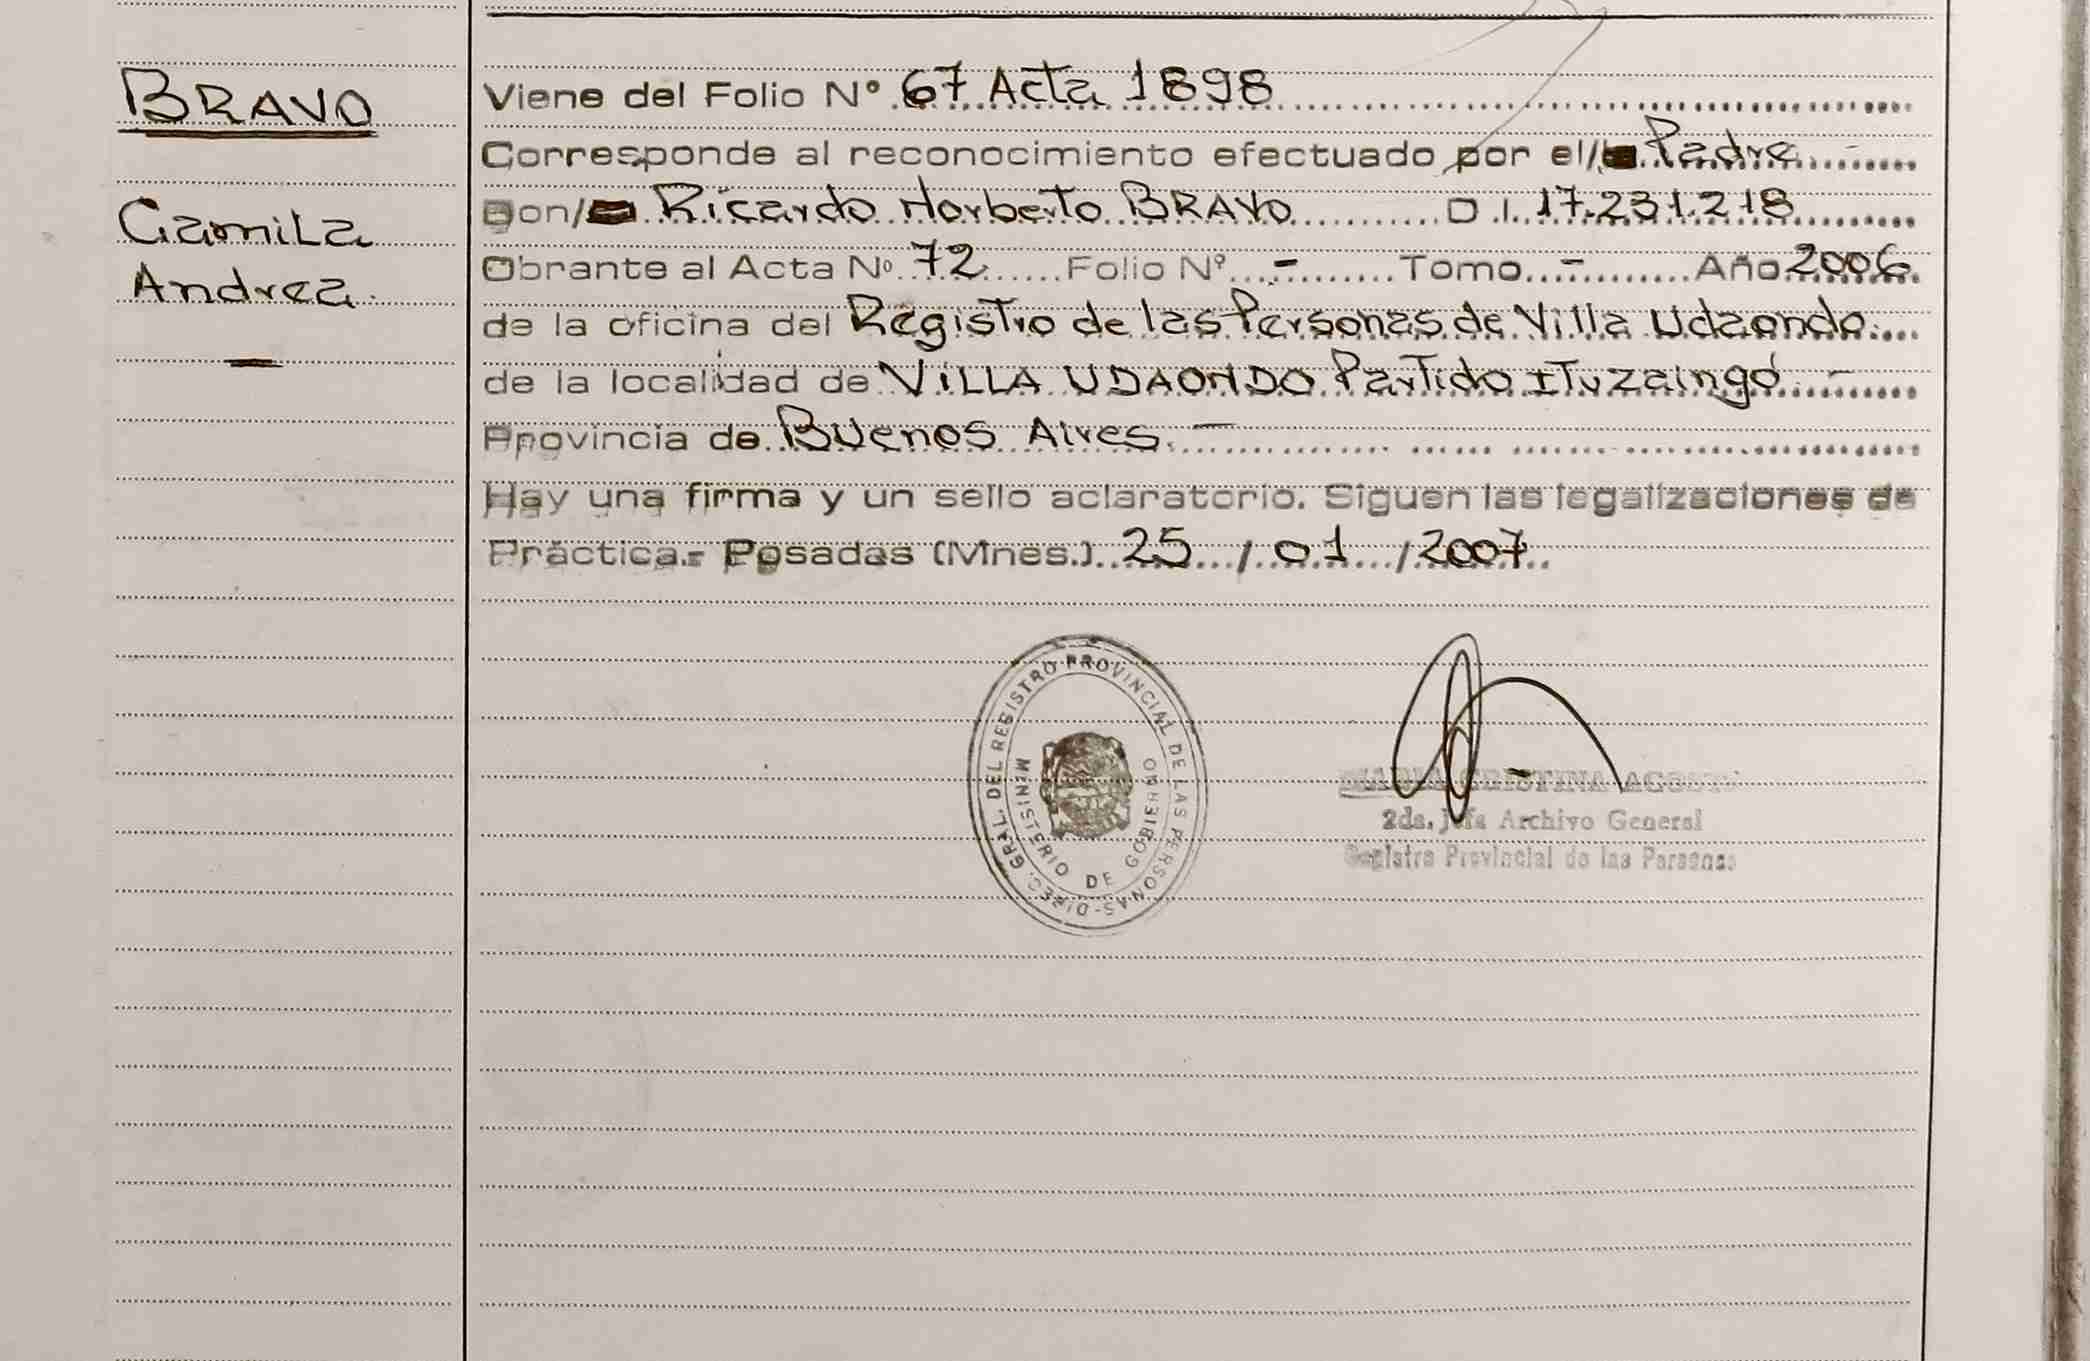 BRAVO
Camila
Andrea
Viene del Folio N° 67 Acta 1898
Corresponde al reconocimiento efectuado por el/ Padre
Don/ Ricardo Norberto BRAVO D.I. 17.231.218
Obrante al Acta Nº 72 Folio Nº - Tomo - Año 2006
de la oficina del Registro de las Personas de Villa Udaondo
de la localidad de VILLA UDAONDO Partido Ituzaingó -
Provincia de Buenos Aires. -
Hay una firma y un sello aclaratorio. Siguen las legalizaciones de
Práctica.- Posadas (Mnes.) 25 / 01 / 2007
DIREC. GRAL. DEL REGISTRO PROVINCIAL DE LAS PERSONAS-
MINISTERIO DE GOBIERNO
MARIA CRISTINA
2da. Jefa Archivo General
Registro Provincial de las Personas